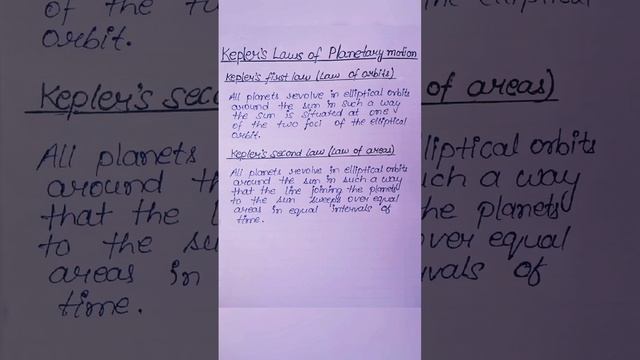 Kepler's Laws of Planetary motion
Kepler's first law (Law of orbits)
All planets revolve in elliptical orbits
around the sun in such a way
the sun is situated at one
of the two foci of the elliptical
orbit.
Kepler's second law (Law of areas)
All planets revolve in elliptical orbits
around the sun in such a way
that the line joining the planets
to the sun sweeps over equal
areas in equal intervals of
time.